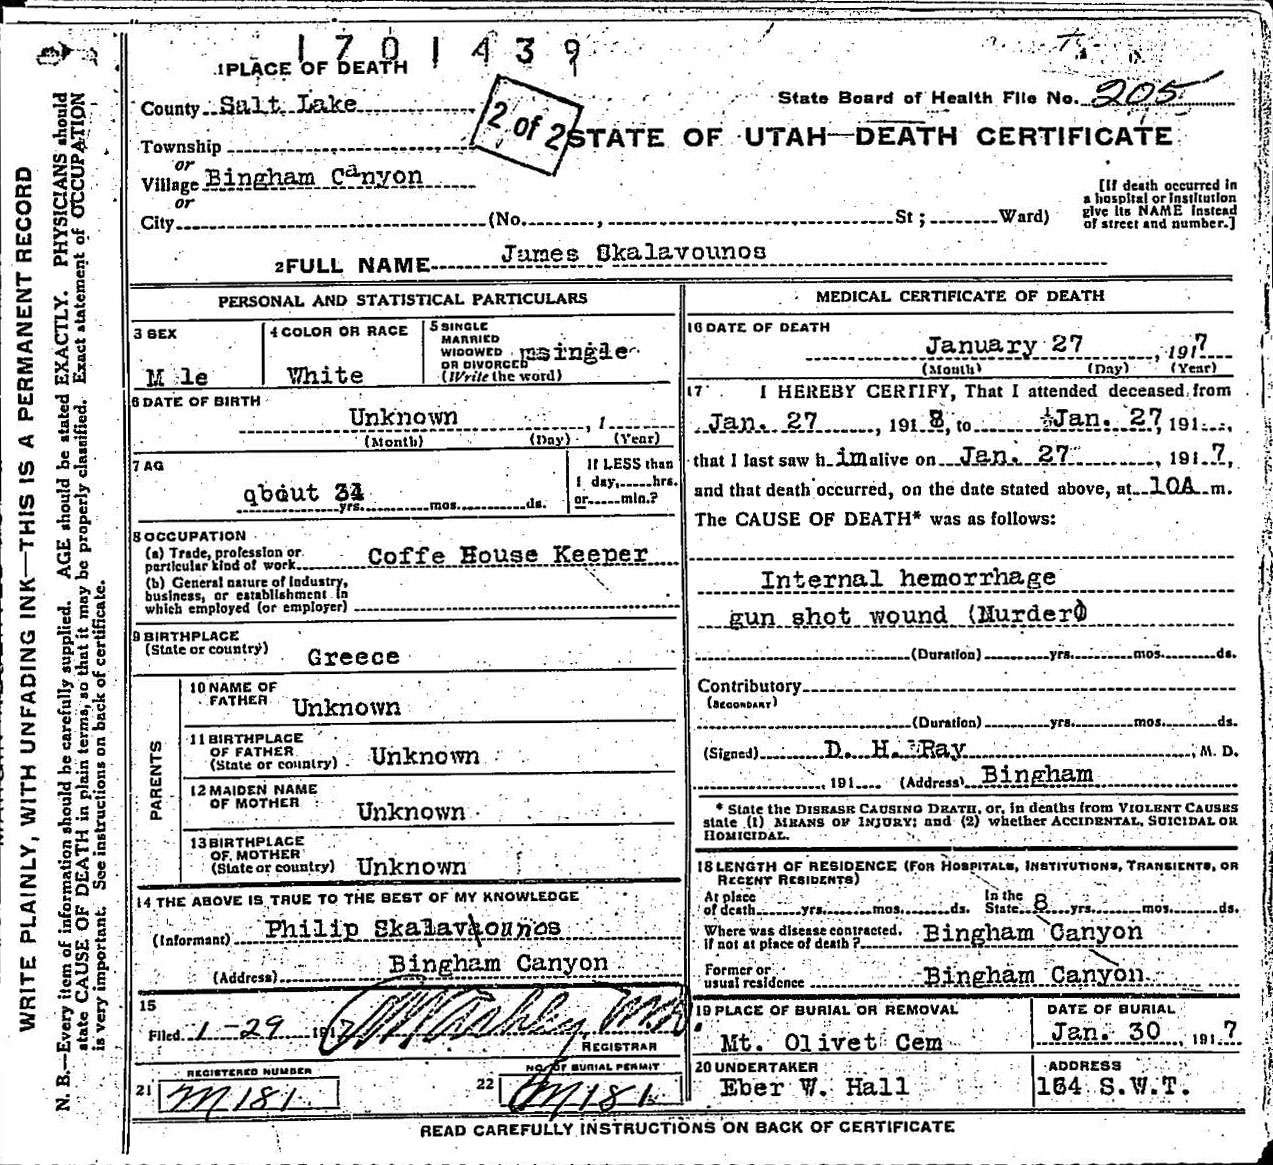 1701439
1 PLACE OF DEATH
County Salt Lake
State Board of Health File No. 205
2 of 2
STATE OF UTAH—DEATH CERTIFICATE
Township
or
Village Bingham Canyon
or
City (No. , St ; Ward)
[If death occurred in
a hospital or institution
give its NAME instead
of street and number.]
2 FULL NAME James Skalavounos
PERSONAL AND STATISTICAL PARTICULARS
3 SEX
M le
4 COLOR OR RACE
White
5 SINGLE
MARRIED
WIDOWED
OR DIVORCED
(Write the word)
msingle
6 DATE OF BIRTH
Unknown , 1
(Month) (Day) (Year)
7 AG
qbout 34
yrs. mos. ds.
If LESS than
1 day, hrs.
or min.?
8 OCCUPATION
(a) Trade, profession or
particular kind of work Coffe House Keeper
(b) General nature of Industry,
business, or establishment in
which employed (or employer)
9 BIRTHPLACE
(State or country)
Greece
PARENTS
10 NAME OF
FATHER
Unknown
11 BIRTHPLACE
OF FATHER
(State or country)
Unknown
12 MAIDEN NAME
OF MOTHER
Unknown
13 BIRTHPLACE
OF MOTHER
(State or country) Unknown
14 THE ABOVE IS TRUE TO THE BEST OF MY KNOWLEDGE
(Informant) Philip Skalavounos
(Address) Bingham Canyon
15
Filed 1-29 1917
REGISTRAR
REGISTERED NUMBER
21 M181
NO. OF BURIAL PERMIT
22 M181
MEDICAL CERTIFICATE OF DEATH
16 DATE OF DEATH
January 27 , 1917
(Month) (Day) (Year)
17 I HEREBY CERTIFY, That I attended deceased from
Jan. 27 , 1918, to Jan. 27, 191 ,
that I last saw h im alive on Jan. 27 , 1917,
and that death occurred, on the date stated above, at 10A m.
The CAUSE OF DEATH* was as follows:
Internal hemorrhage
gun shot wound (Murder)
(Duration) yrs. mos. ds.
Contributory
(SECONDARY)
(Duration) yrs. mos. ds.
(Signed) D. H. Ray , M. D.
, 191 (Address) Bingham
* State the DISEASE CAUSING DEATH, or, in deaths from VIOLENT CAUSES
state (1) MEANS OF INJURY; and (2) whether ACCIDENTAL, SUICIDAL OR
HOMICIDAL.
18 LENGTH OF RESIDENCE (FOR HOSPITALS, INSTITUTIONS, TRANSIENTS, OR
RECENT RESIDENTS)
At place
of death yrs. mos. ds.
In the
State 8 yrs. mos. ds.
Where was disease contracted,
if not at place of death? Bingham Canyon
Former or
usual residence Bingham Canyon
19 PLACE OF BURIAL OR REMOVAL
Mt. Olivet Cem
DATE OF BURIAL
Jan. 30 , 1917
20 UNDERTAKER
Eber W. Hall
ADDRESS
164 S.W.T.
READ CAREFULLY INSTRUCTIONS ON BACK OF CERTIFICATE
WRITE PLAINLY, WITH UNFADING INK—THIS IS A PERMANENT RECORD
N. B.—Every item of information should be carefully supplied. AGE should be stated EXACTLY. PHYSICIANS should
state CAUSE OF DEATH in plain terms, so that it may be properly classified. Exact statement of OCCUPATION
is very important. See instructions on back of certificate.